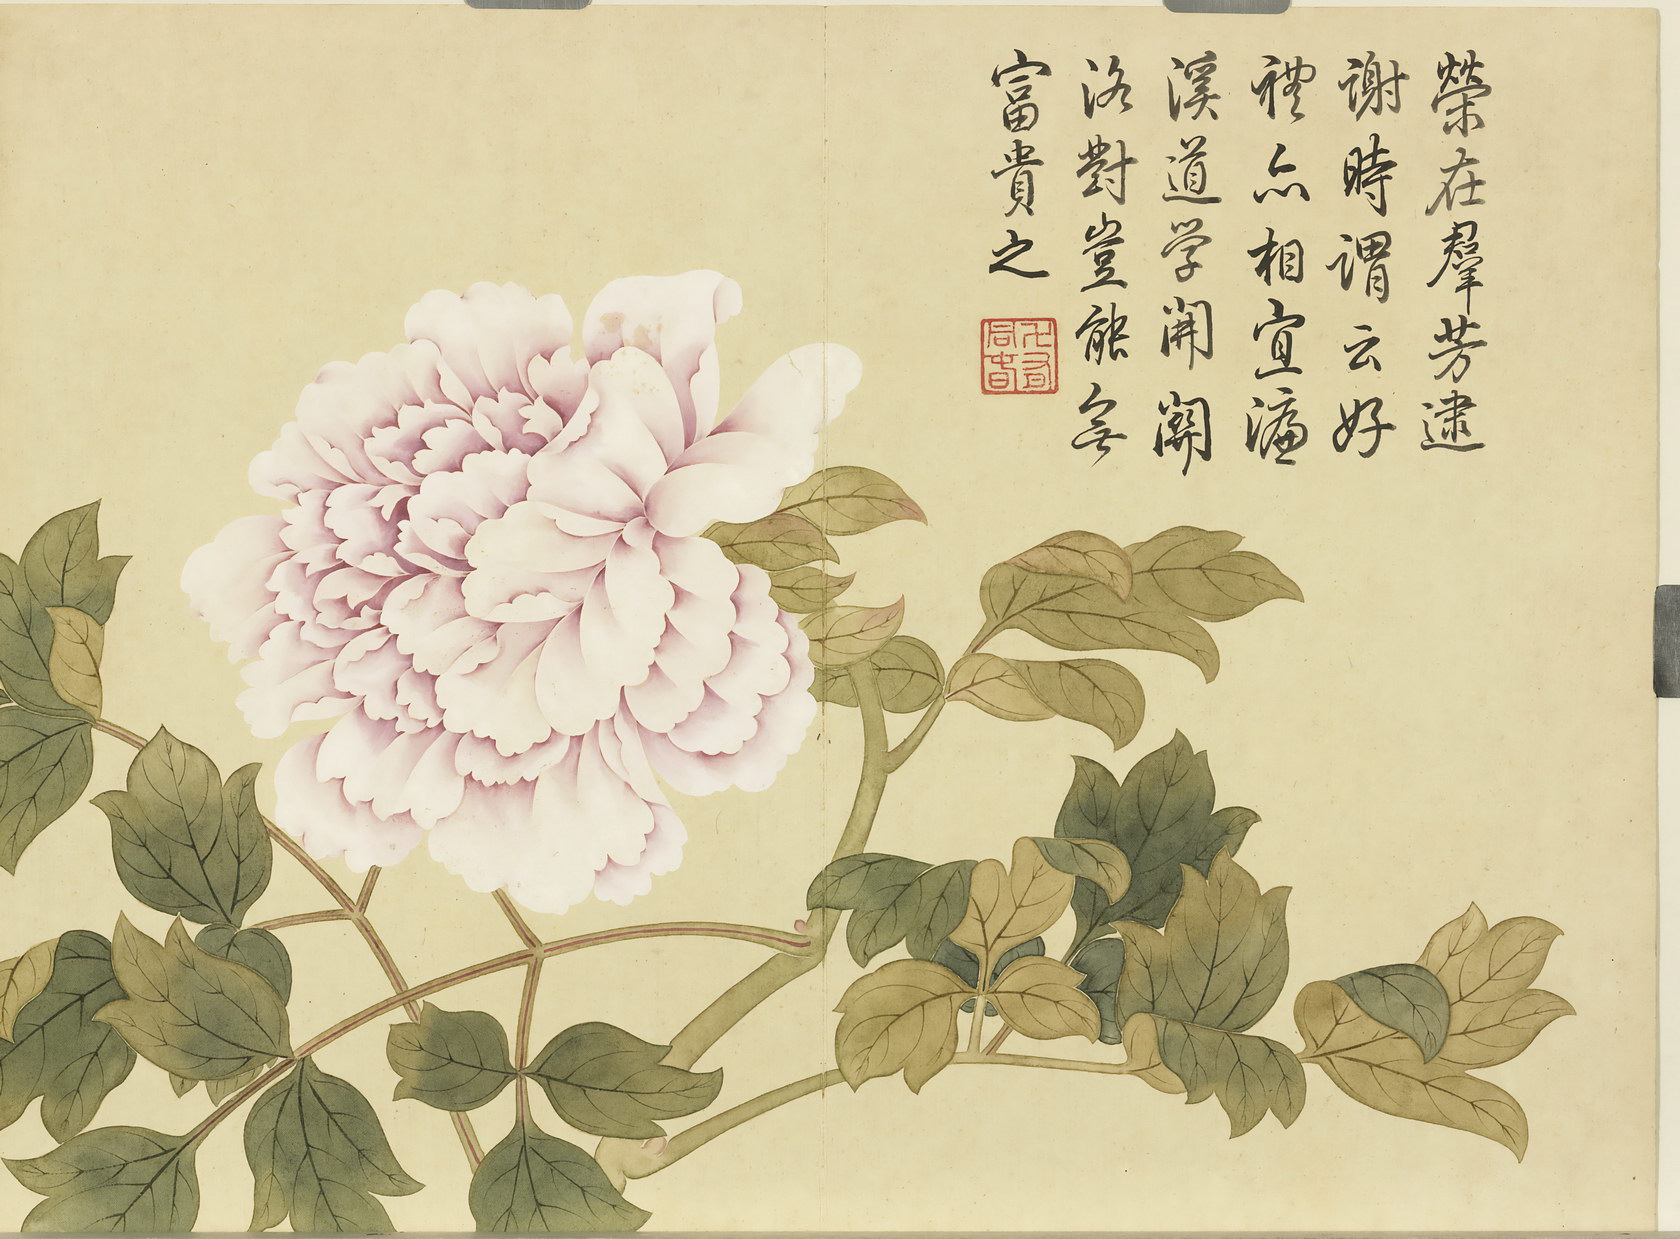 榮在羣芳逮
謝時謂云好
禮亦相宜濂
溪道学開關
洛對豈能無
富貴之